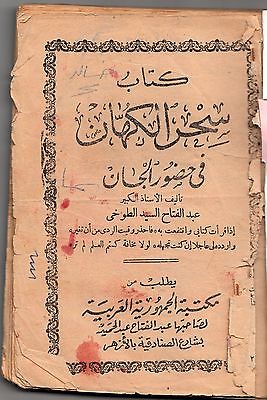 كتاب
سحر الكهان
في حضور الجان
تأليف الاستاذ الكبير
عبد الفتاح السيد الطوخى
إذا قرأت كتابى وانتفعت به فاحذر وقيت الردى من أن تغيره
واردده لى عاجلا إن كنت تجهله لولا مخافة كتم العلم لم تره
يطلب من
مكتبة الجمهورية العربية
لصاحبها عبد الفتاح عبد الحميد
بشارع الصنادقية بالأزهر